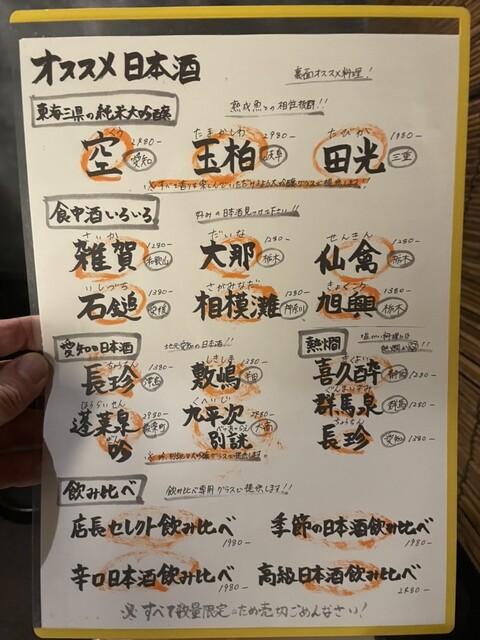 オススメ日本酒
裏面オススメ料理！
東海三県の純米大吟醸
熟成魚との相性抜群！！
くう
空
2980-
愛知
たまかしわ
玉柏
2980-
岐阜
たびか
田光
1980-
三重
食中酒いろいろ
好みの日本酒見つけて下さい！！
さいか
雑賀
1280-
和歌山
だいな
大那
1280-
栃木
せんきん
仙禽
1280-
栃木
いしづち
石鎚
1380-
愛媛
さがみなだ
相模灘
1280-
神奈川
きょくこう
旭興
1380-
栃木
愛知の日本酒
地元愛知の日本酒！！
ちょうちん
長珍
1380-
津島
しきしま
敷嶋
1280-
半田
ほうらいせん
蓬莱泉
吟
2980-
くへいじ
九平次
別誂
2480-
大高
熱燗
きくよい
喜久酔
静岡
1380-
ぐんまいずみ
群馬泉
群馬
1280-
ちょうちん
長珍
愛知
1380-
飲み比べ
飲み比べ専用グラスで提供します！！
店長セレクト飲み比べ
1980-
季節の日本酒飲み比べ
1980-
辛口日本酒飲み比べ
1980-
高級日本酒飲み比べ
2480-
※すべて数量限定のため売切ごめんなさい！